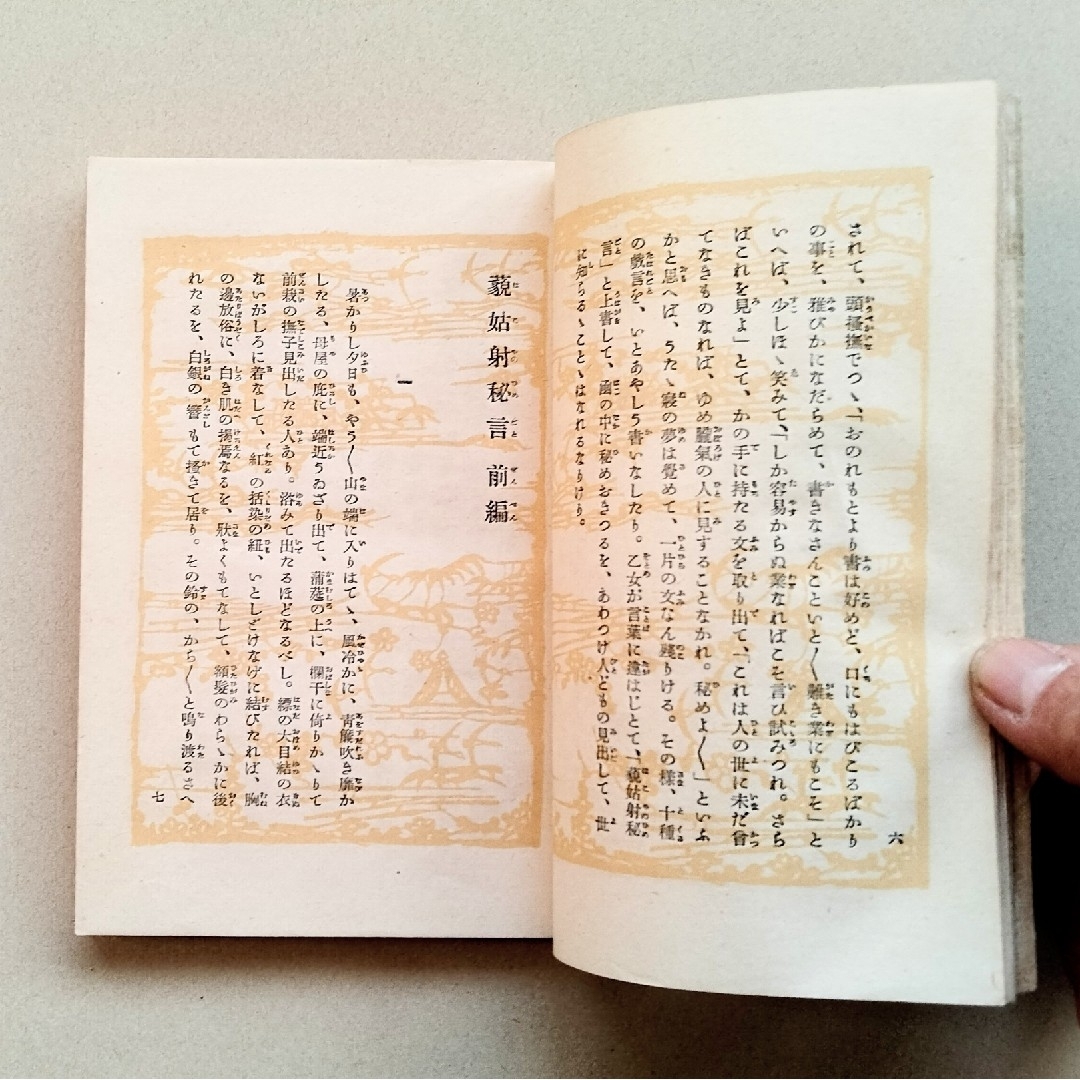 されて、頭掻撫でつゝ、「おのれもとより書は好めど、口にもはびこるばかり
の事を、雅びかになだらめて、書きなさんこといと〳〵難き業にもこそ」と
いへば、少しほゝ笑みて、「しか容易からぬ業なればこそ言ひ試みつれ。さら
ばこれを見よ」とて、かの手に持たる文を取り出て、「これは人の世に未だ曾
てなきものなれば、ゆめ朧氣の人に見することなかれ。秘めよ〳〵」といふ
かと思へば、うたゝ寝の夢は覺めて、一片の文なん殘りける。その様、十種
の戲言を、いとあやしう書いなしたり。乙女が言葉に違はじとて、「藐姑射秘
言」と上書して、凾の中に秘めおきつるを、あわつけ人どもの見出して、世
に知らるゝことゝはなれるなりけり。
六
藐姑射秘言 前編
一
暑かりし夕日も、やう〳〵山の端に入りはてゝ、風冷かに、青簾吹き靡か
したる、母屋の庇に、端近うゐざり出て、蒲莚の上に、欄干に倚りかゝりて
前栽の撫子見出したる人あり。浴みて出たるほどなるべし。縹の大目結の衣
ないがしろに着なして、紅の括染の紐、いとしどけなげに結びたれば、胸
の邊放俗に、白き肌の掲焉なるを、狀よくもてなして、額髮のわらゝかに後
れたるを、白銀の簪もて搔きて居り。その鈴の、から〳〵と鳴り渡るさへ
七